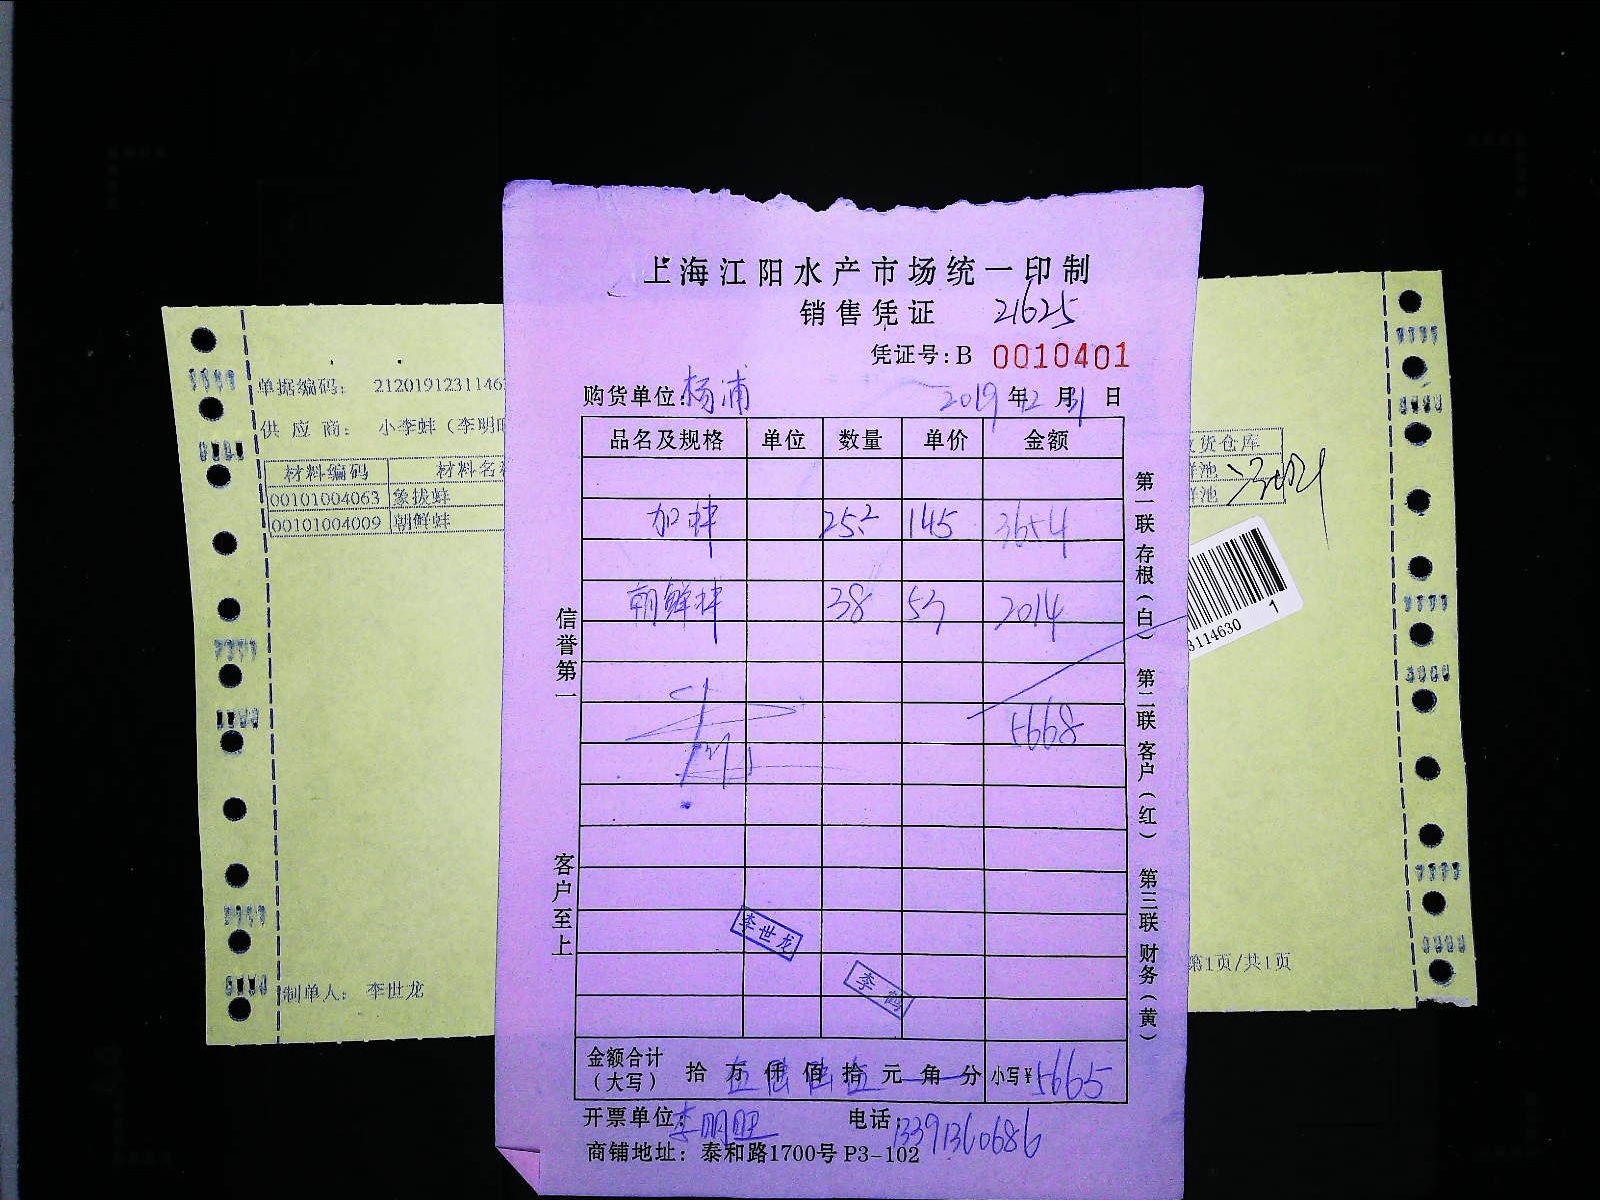 上海江阳水产市场统一印制
销售凭证 21625
凭证号:B 0010401
购货单位:杨浦 2019年12月31日
品名及规格 单位 数量 单价 金额
加蚌 25.2 145 3654
朝鲜蚌 38 53 2014
5668
李世龙
李鹤
金额合计(大写) 拾万仟佰拾元角分 小写¥5665
开票单位:李明旺 电话:13391360686
商铺地址:泰和路1700号P3-102
信誉第一
客户至上
第一联存根(白) 第二联客户(红) 第三联财务(黄)
单据编码: 2120191231146
供应商: 小李蚌(李明
材料编码 材料名
00101004063 象拔蚌
00101004009 朝鲜蚌
制单人: 李世龙
货仓库
鲜池
鲜池
3114630
1
第1页/共1页